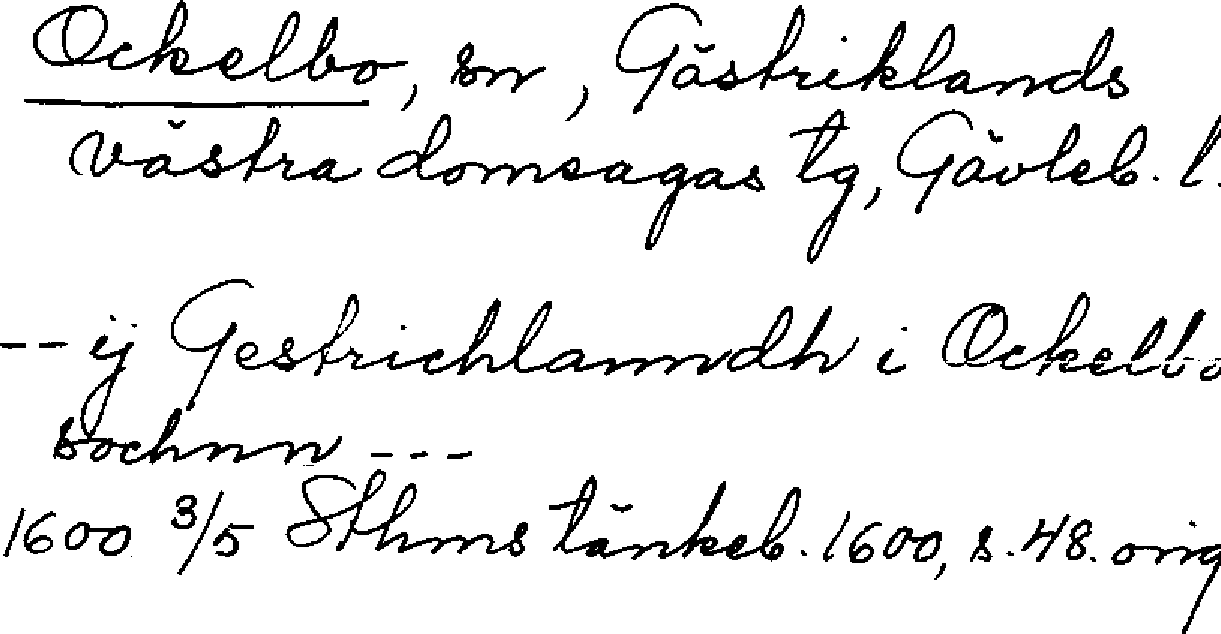 Ockelbo, sn, Gästriklands
västra domsagas tg, Gävleb. l.
-- ij Gestrichlanndh i Ockelbo
sochnn ---
1600 3/5 Sthms tänkeb. 1600, s. 48. orig